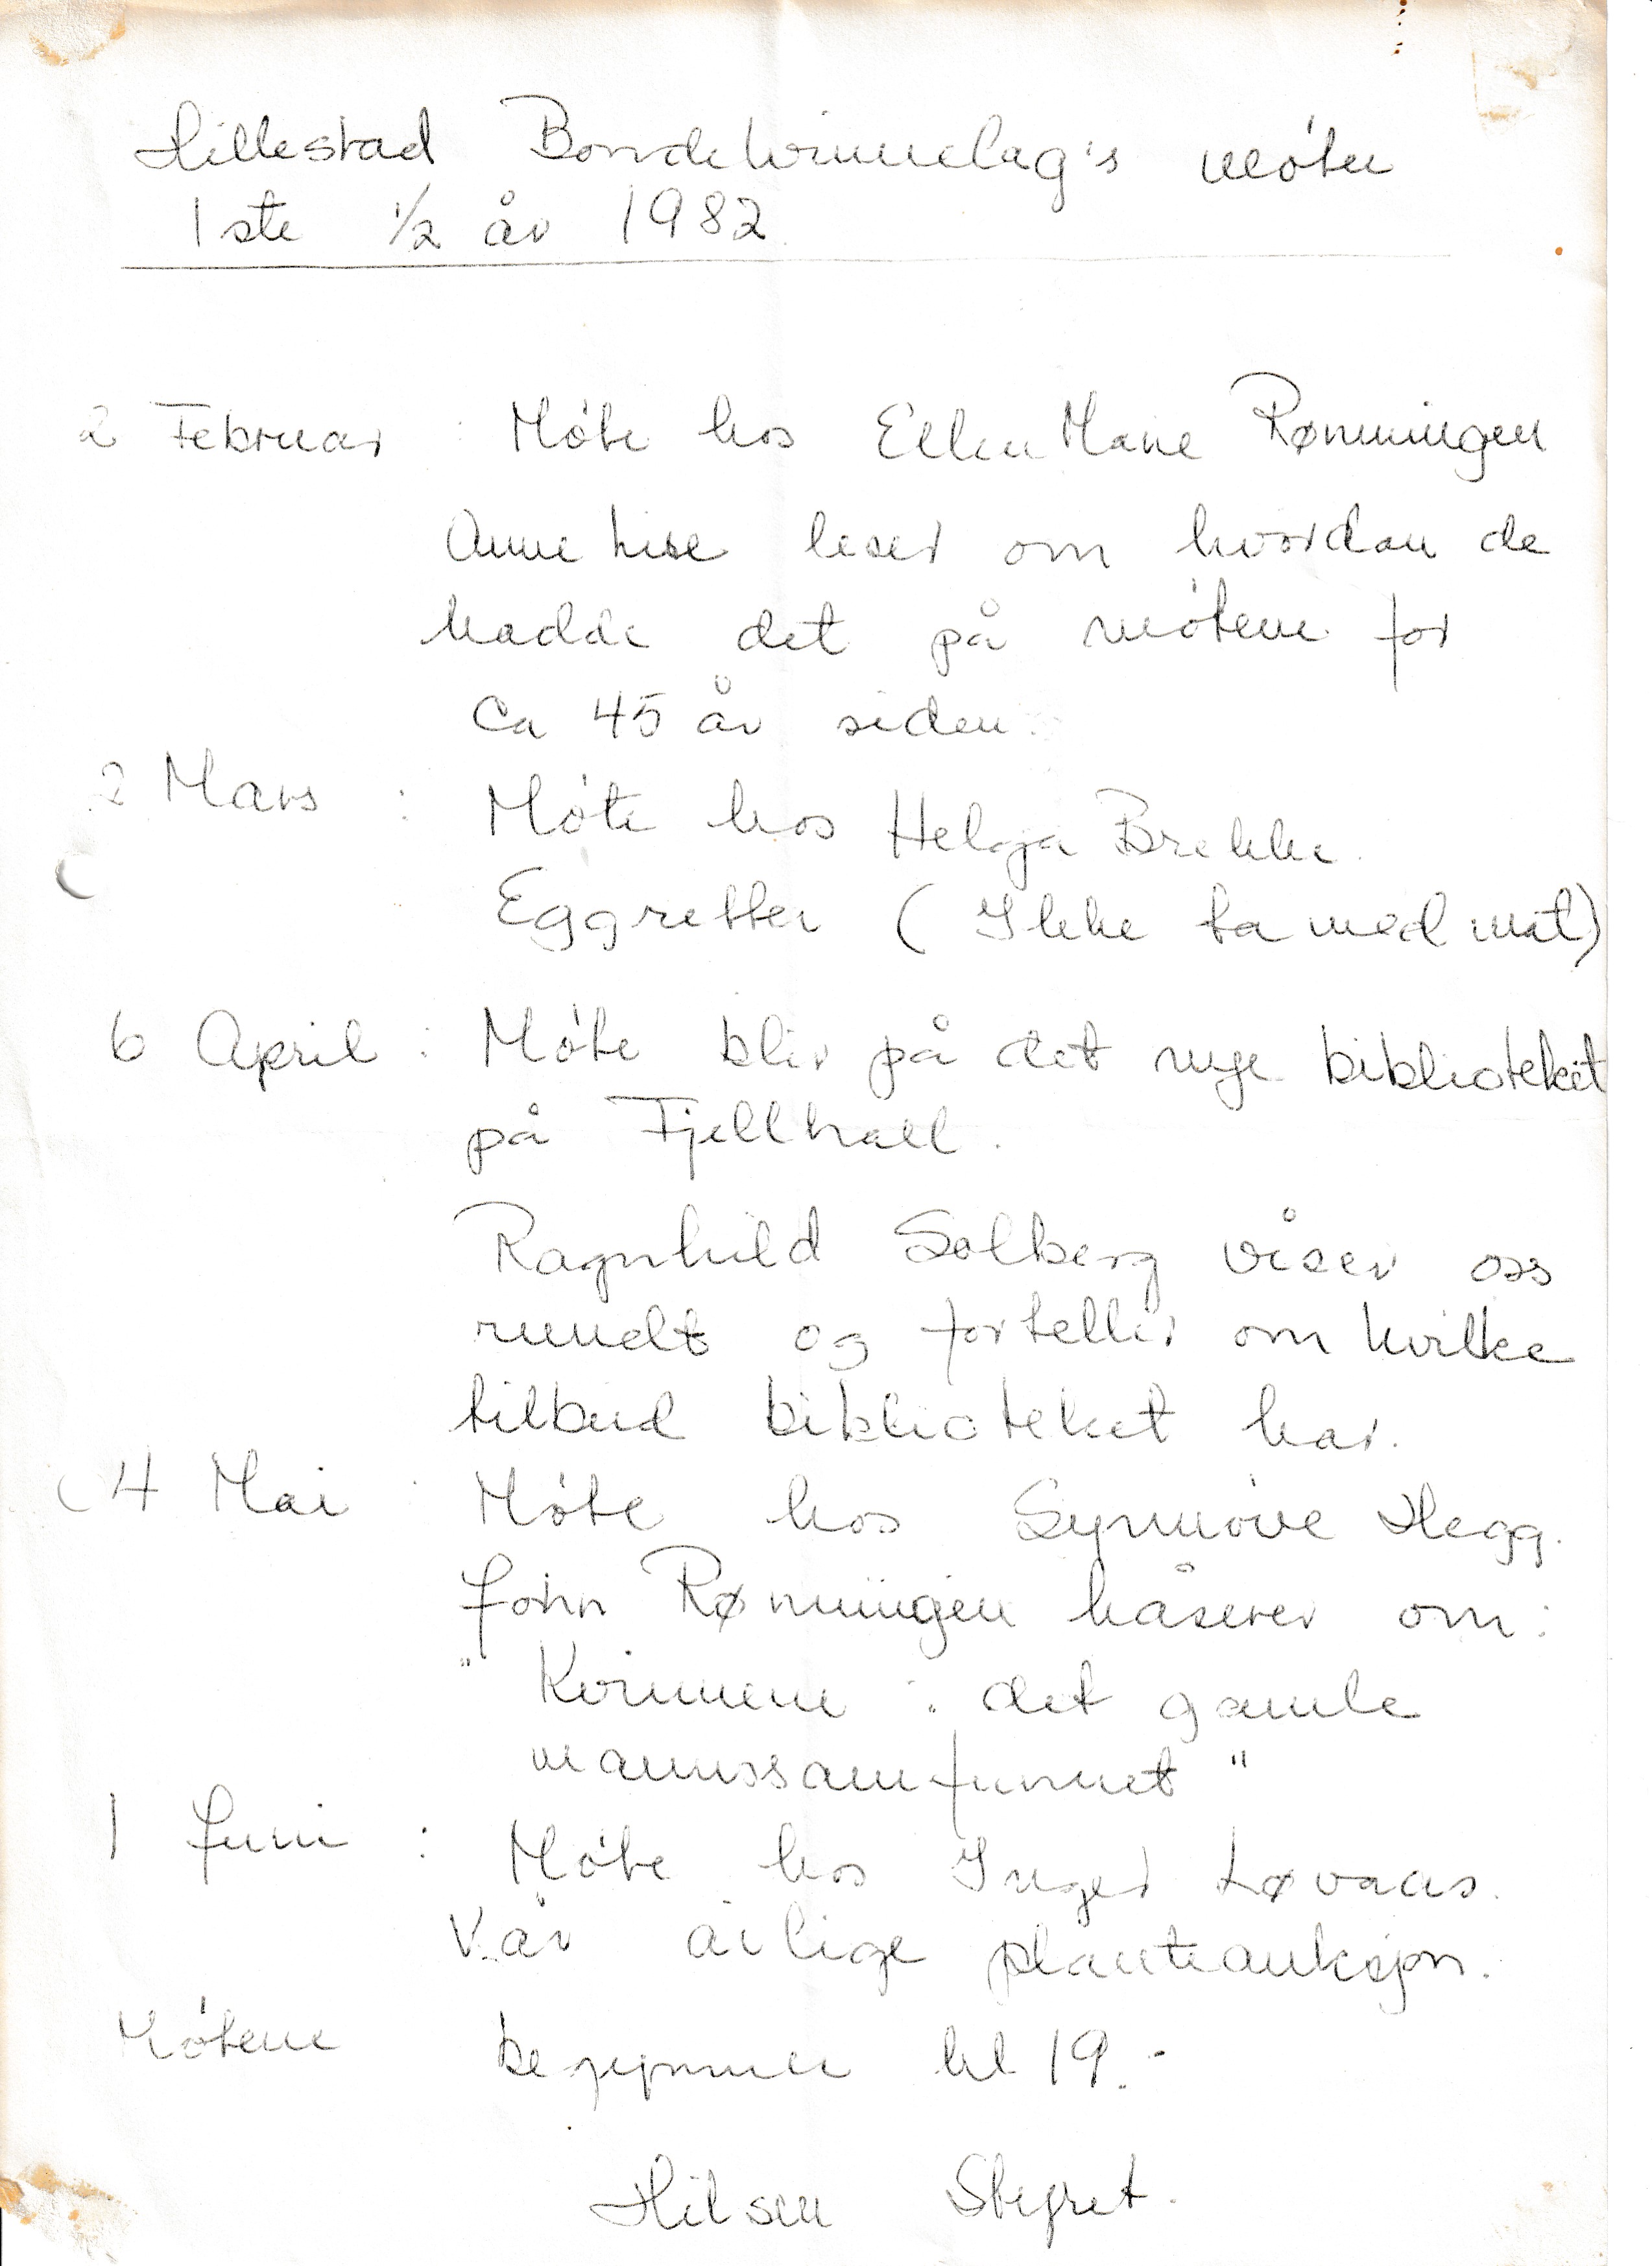 Hillestad Bondekvinnelag's møter
1ste 1/2 år 1982
2 Februar : Møte hos Ellen Marie Rønningen
Anne Lise leser om hvordan de
hadde det på møtene for
ca 45 år siden.
2 Mars : Møte hos Helga Brekke.
Eggretter (Ikke ta med mat)
6 April : Møte blir på det nye biblioteket
på Fjellhall.
Ragnhild Solberg viser oss
rundt og forteller om hvilke
tilbud biblioteket har.
4 Mai : Møte hos Synnøve Hegg.
John Rønningen kåserer om:
" Kvinnene i det gamle
mannssamfunnet "
1 Juni : Møte hos Inger Løvaas.
Vår årlige planteauksjon.
Møtene begynner kl 19.-
Hilsen Styret.